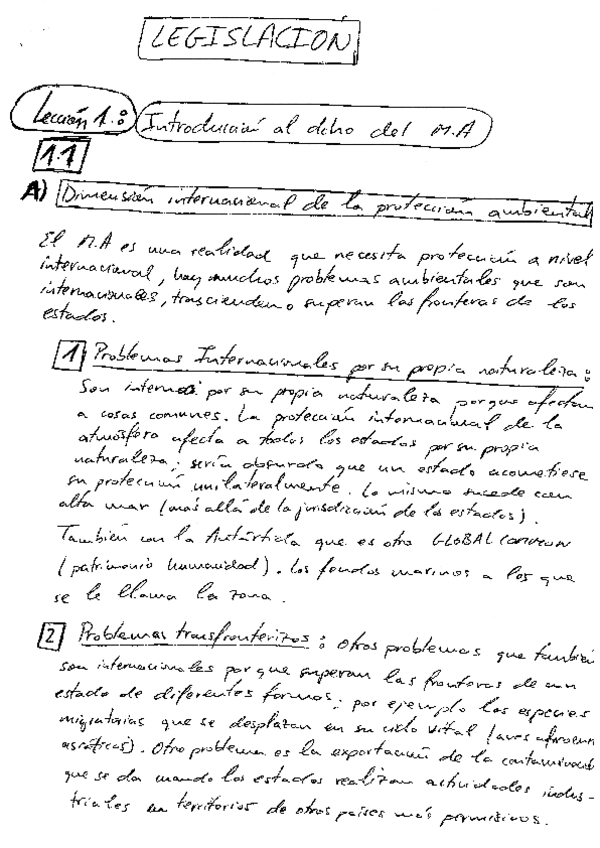 LEGISLACIÓN
Lección 1.: Introducción al dcho del M.A
1.1
A) Dimensión internacional de la protección ambiental
El M.A es una realidad que necesita protección a nivel
internacional, hay muchos problemas ambientales que son
internacionales, trascienden o superan las fronteras de los
estados.
1 Problemas Internacionales por su propia naturaleza:
Son por su propia naturaleza porque afectan
a cosas comunes. La protección internacional de la
atmósfera afecta a todos los estados por su propia
naturaleza; sería absurdo que un estado acometiese
su protección unilateralmente. Lo mismo sucede con
alta mar (más allá de la jurisdicción de los estados).
También con la Antártida que es otro GLOBAL COMMON
(patrimonio humanidad). Los fondos marinos a los que
se le llama la zona.
2 Problemas transfronterizos: Otros problemas que también
son internacionales porque superan las fronteras de un
estado de diferentes formas; por ejemplo las especies
migratorias que se desplazan en su ciclo vital (aves
asiáticas). Otro problema es la exportación de la
que se da cuando los estados realizan actividades indus-
triales en territorios de otros países más permisivos.